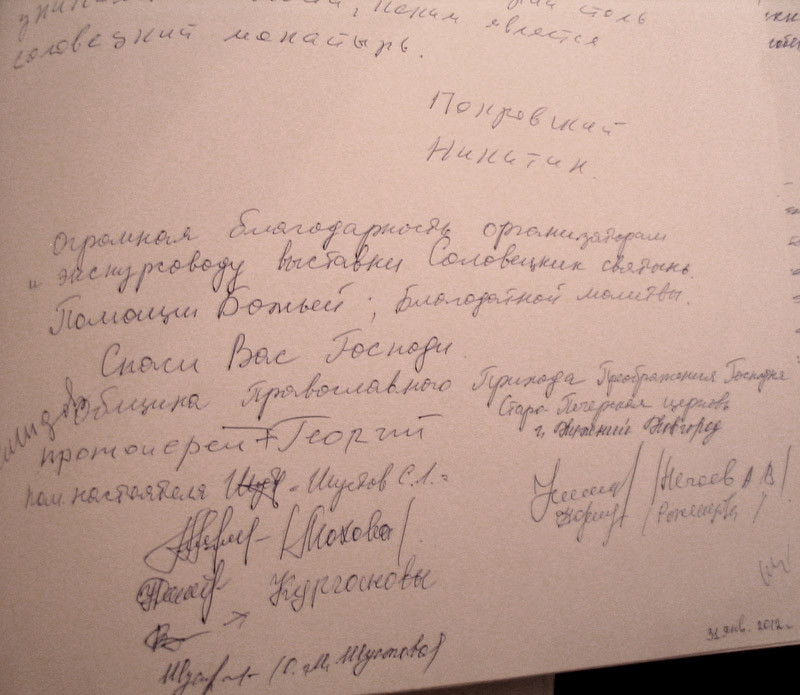 столь
, каким является
соловецкий монастырь.
Покровский
Никитин.
Огромная благодарность организаторам
и экскурсоводу выставки Соловецких святынь.
Помощи Божьей, благодатной молитвы.
Спаси Вас Господи.
Община Православного Прихода Преображения Господня
Старо-Печерская церковь
г. Нижний Новгород
протоиерей Георгий
пом. настоятеля Шустов С.Л.
/Нечаев А В/
/Мохова/.
Кургановы
/О. М. Шустова/
31 янв. 2012 г.